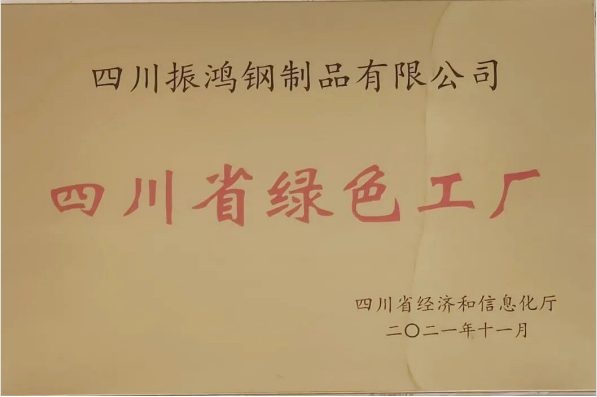 四川振鸿钢制品有限公司
四川省绿色工厂
四川省经济和信息化厅
二〇二一年十一月